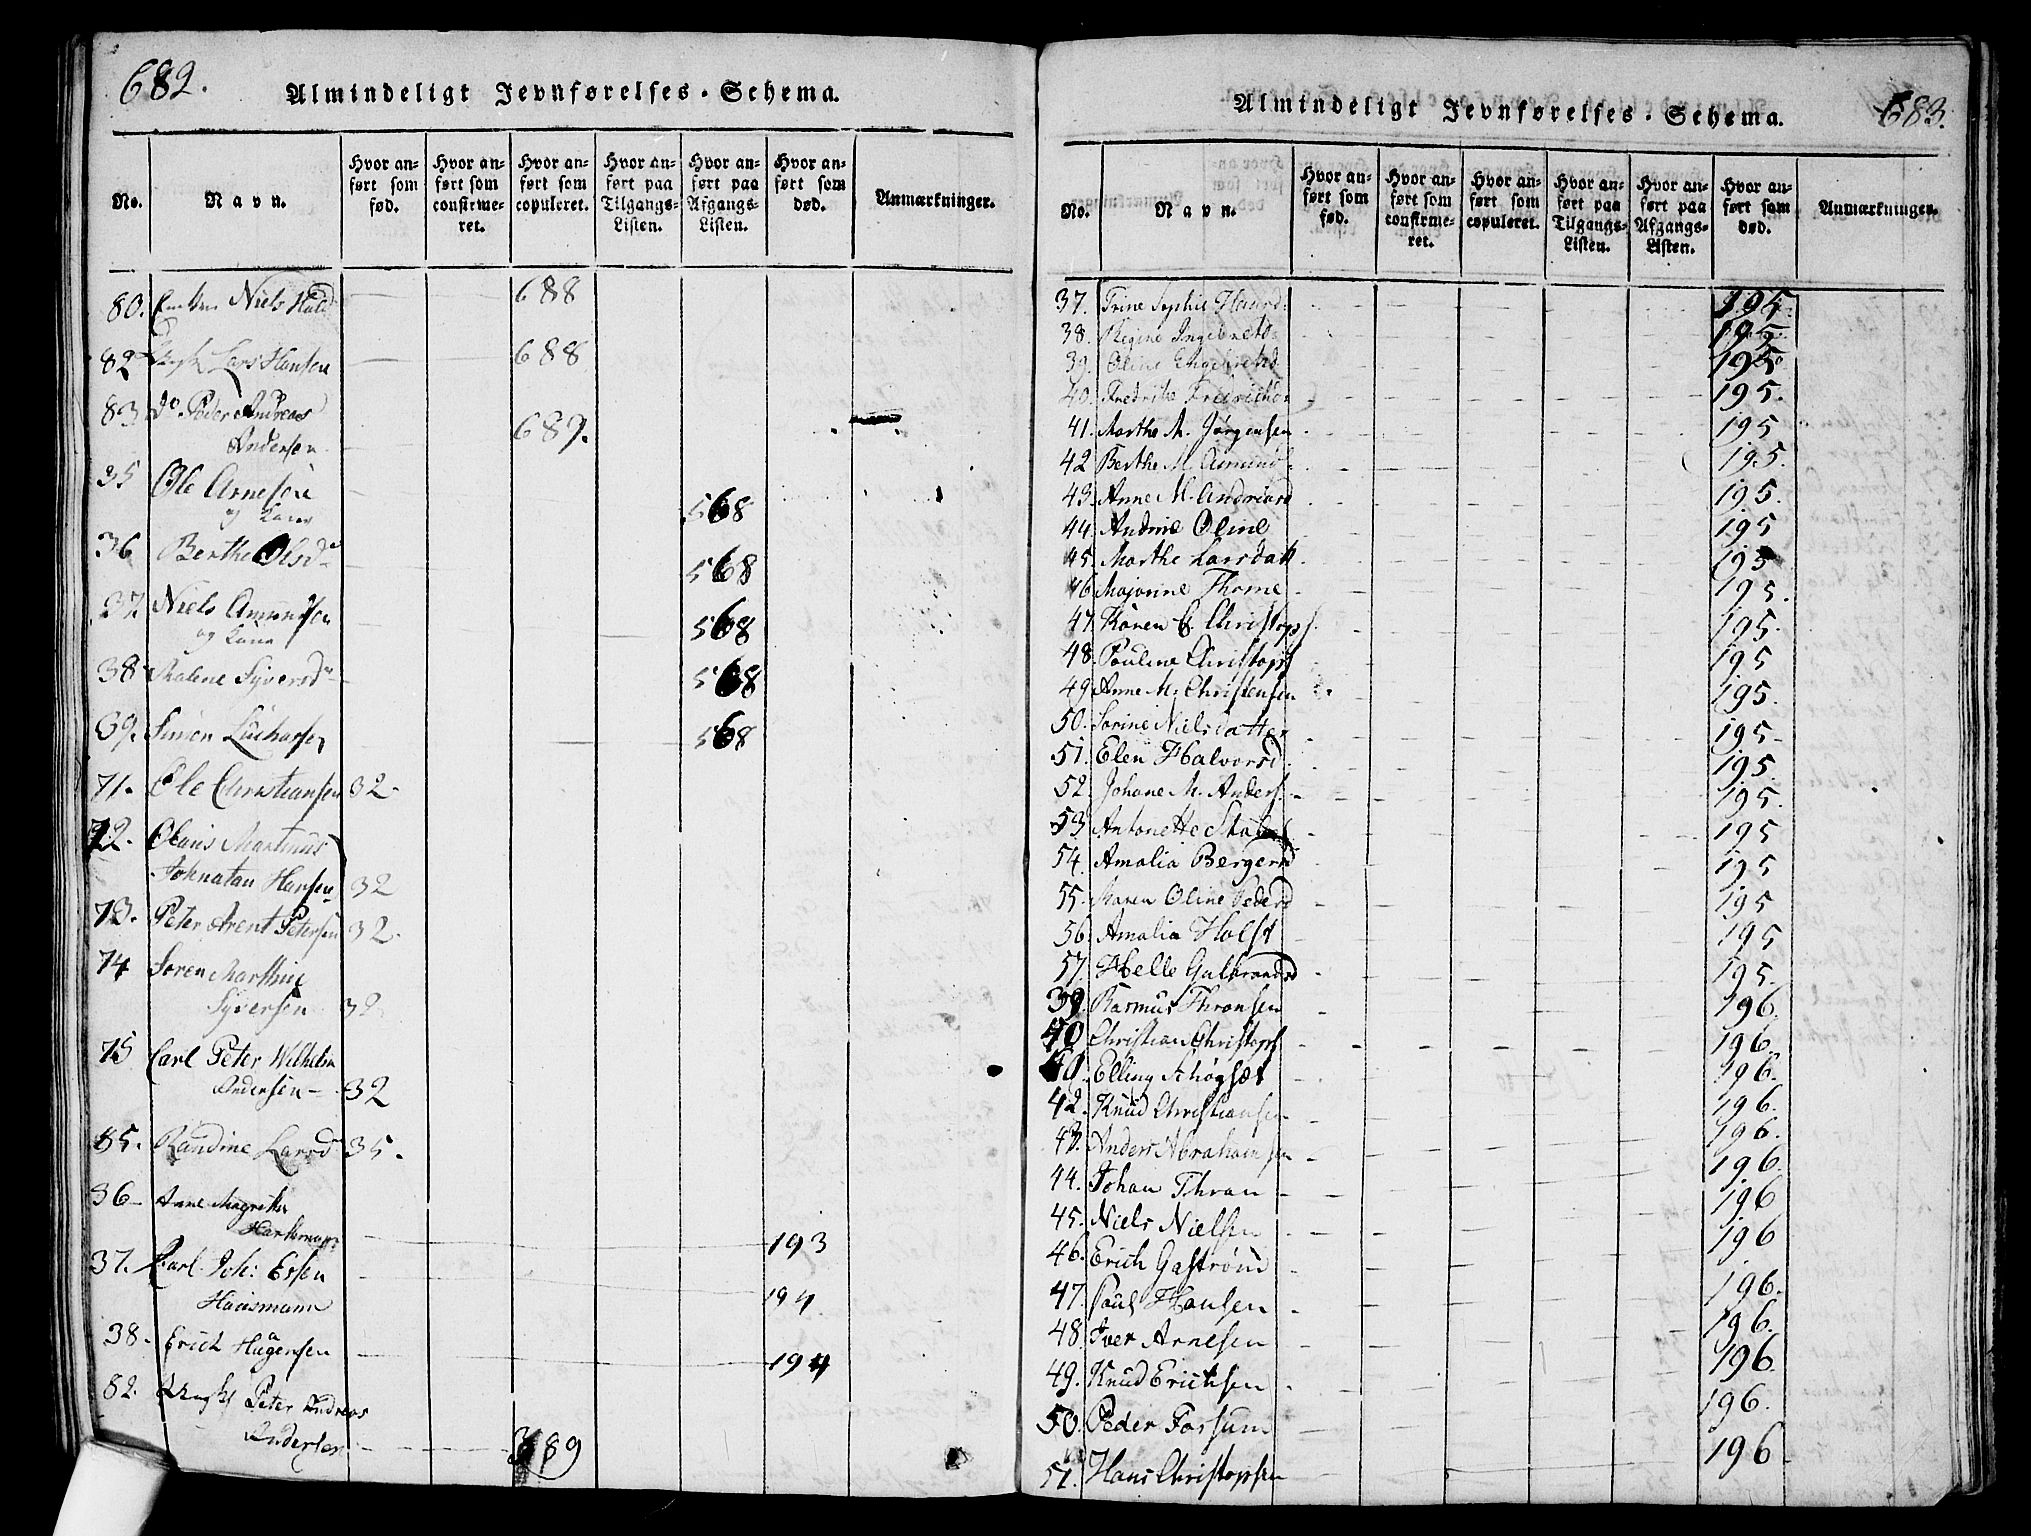 682.
Almindeligt Jevnførelses-Schema.
No.
Navn.
Hvor an-
ført som
fød.
Hvor an-
ført som
confirme-
ret.
Hvor an-
ført som
copuleret.
Hvor an-
ført paa
Tilgangs-
Listen.
Hvor an-
ført paa
Afgangs-
Listen.
Hvor an-
ført som
død.
Anmærkninger.
80. Niels 688
82 Lars Hansen 688
83 Do. Peder Andreas
Andersen 689.
35 Ole Arnesen
og Kone 568
36 Berthe Olsd 568
37 Niels Amundsen
og Kone 568
38 Malene Syversd 568
39. Simon 568
71. Ole Christiansen 32.
72. Olaus Martinus
Johnatan Hansen 32
73. Peter Arent Petersen 32.
74 Søren Marthin
Syversen 32
75 Carl Peter Wilhelm
Andersen 32
85. Randine Larsd 35.
36 Anne Magrethe
193
37. Carl Joh: Essen
Hausmann 194
38. Erich Hagensen 194
82. Peter Andreas
Andersen 689
683.
Almindeligt Jevnførelses-Schema.
No.
Navn.
Hvor an-
ført som
fød.
Hvor an-
ført som
confirme-
ret.
Hvor an-
ført som
copuleret.
Hvor an-
ført paa
Tilgangs-
Listen.
Hvor an-
ført paa
Afgangs-
Listen.
Hvor an-
ført som
død.
Anmærkninger.
37. Trine Sophie 195.
38. Regine Ingebretd 195
39. Oline Engebretsd 195
40. Fredrike 195.
41. Marthe M. Jørgensen 195
42 Berthe M. Amund 195.
43. Anne M. 195.
44. Andrine Oline 195
45. Marthe Larsdatt. 195
46 Majorine Thorne 195.
47. Karen C. Christops. 195
48. Pouline Christops 195
49. Anne M. Christensen 195.
50. Sorine Nielsdatter 195
51. Elen Halvorsd. 195.
52. Johane M. Anders. 195.
53 Antonette 195
54. Amalia Bergersd 195
55. Maren Oline Pedersd 195
56. Amalia Holst 195
57. Helle Gulbrandsd 195.
39. Rasmus Thronsen 196.
40 Christian Christops 196.
Elling 196.
42. Knud Christiansen 196.
43. Anders Abrahamsen 196.
44. Johan Thran 196.
45. Niels Nielsen 196
46. Erich Gastrøm 196
47. Poul Hansen 196.
48. Iver Arnesen 196.
49. Knud Erichsen 196.
50. Peder Forsum 196.
51. Hans Christopsen 196